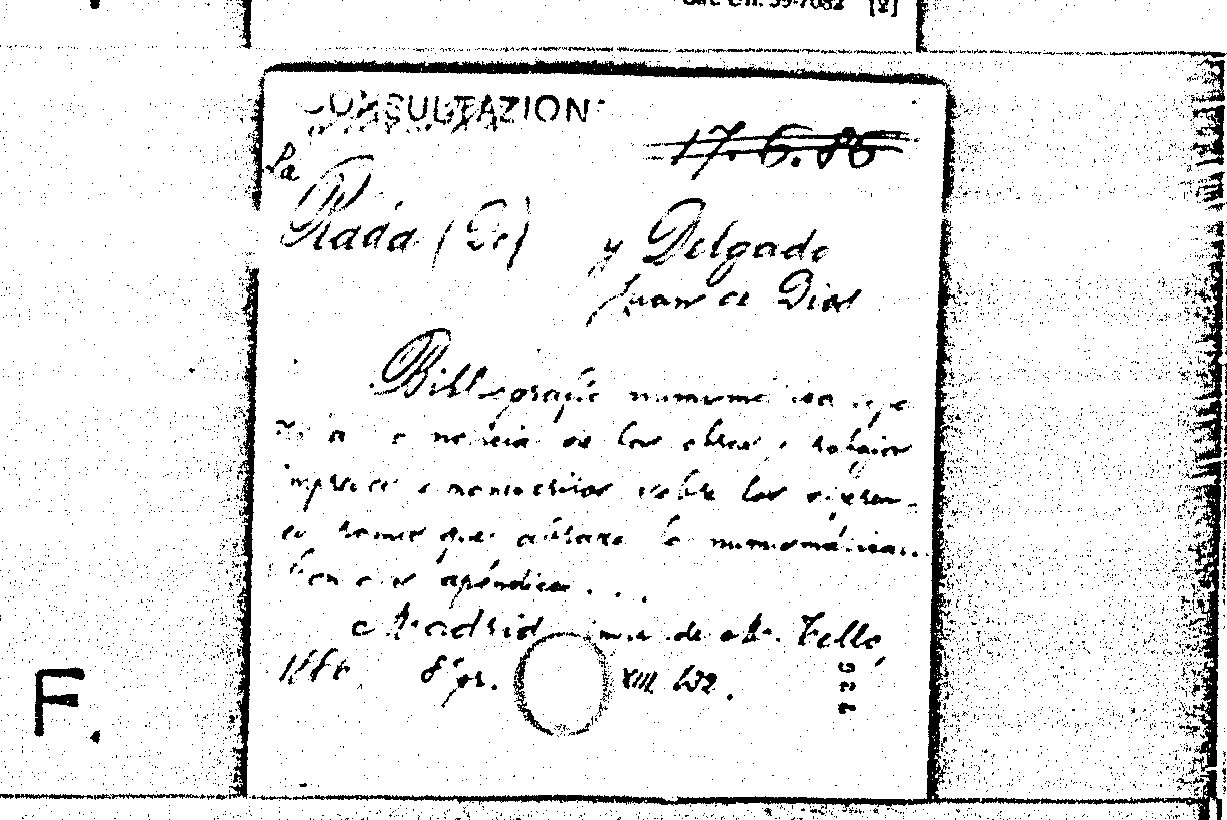 Cat. Ch. 59-7082 [8]
CONSULTAZION
17.6.86
La
Rada (De) y Delgado
Juan de Dios
Bibliografia numismatica espa
noticia de las obras y trabajos
impresos o manuscritos sobre los diferen-
ramos que abraza la numismática
con apéndice . . .
Madrid, de M. Tello,
1886. 8º gr. XIII 632.
F.